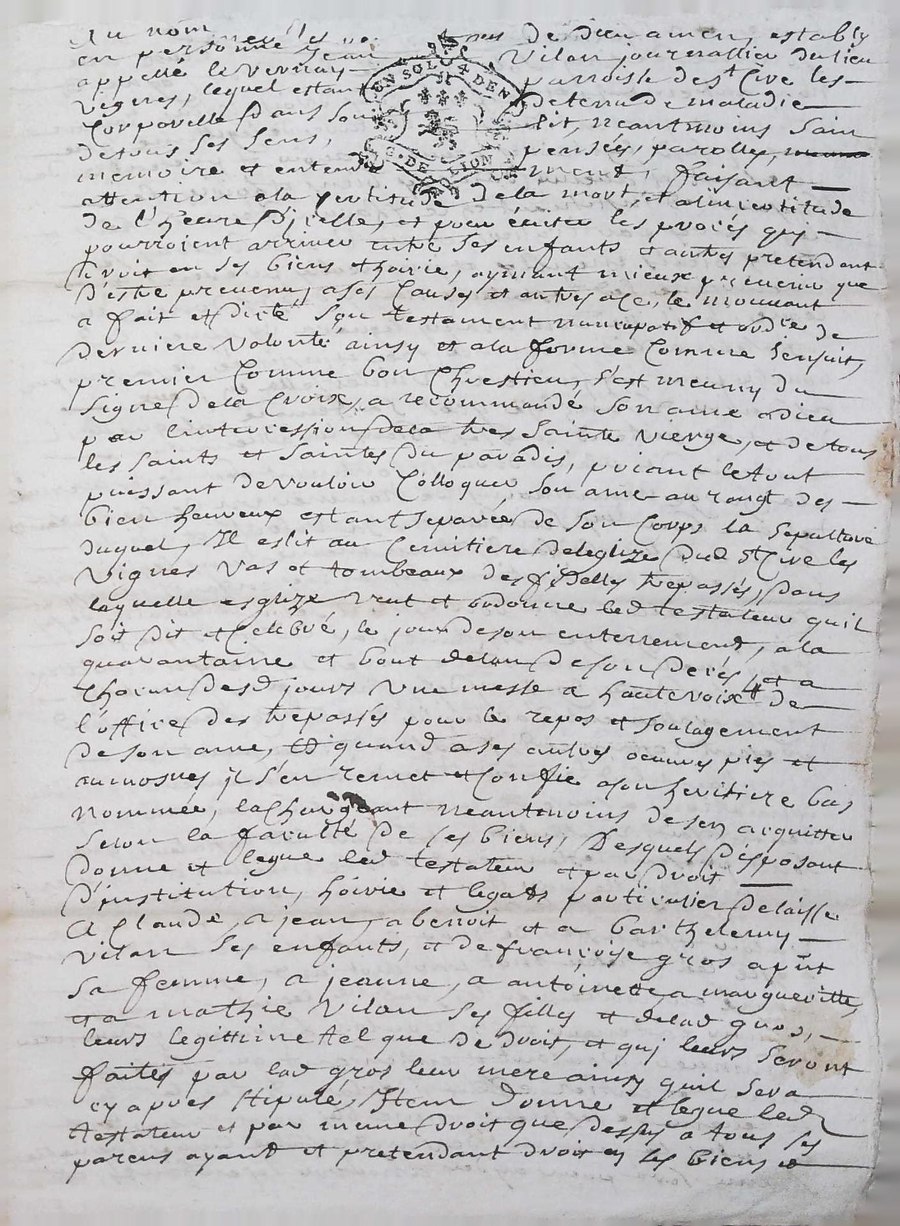 Au nom de dieu amen, estably
en personne Jean Vilan journallier du lieu
appellé le vernay parroisse de St Cire les
vignes, lequel estant detenu de maladie
Corporelle dans son lit, neantmoins sain
de tous ses sens, pensée, parolle,
memoire et entendement, faisant
attention a la certitude de la mort, et a l'incertitude
de l'heure d'icelle, et pour éviter les procés qui
pourroient arriver entre ses enfants et autres pretendant
droit en ses biens et hoirie, aymant mieux prevenir que
d'estre prevenu, a ses causes et autres a ce, le mouvant
a fait et dicté son testament nuncupatif et ordre de
derniere volonté ainsy et a la forme comme s'ensuit,
premier comme bon Chrestien, s'est meuny du
signe de la Croix, a recommandé son ame a dieu
par l'intercession de la tres Sainte Vierge, et de tous
les saints et saintes du paradis, priant le tout
puissant de vouloir Colloquer son ame au rangt des
bien heureux estant separée de son Corps la sepulture
duquel, Il eslit au Cemitiere de leglize dud St Cire les
Vignes vas et tombeaux des fidelles trepassés, dans
laquelle esglize veut et ordonne led testateur quil
soit dit et Celebré, le jour de son enterrement, a la
quarantaine et bout delan de son decés, et a
Chacun desd jours une messe a haute voix de
l'office des trepassés pour le repos et soulagement
de son ame, Et quand a ses autres oeuvres pies et
aumosnes il s'en remet et confie a son heritiere bas
nommée, la Chargeant neantmoins de sen acquitter
selon la faculté de ses biens, Desquels disposant
donne et legue led testateur et par droit
d'institution, hoirie et legats particulier delaisse
A Claude, a jean, a benoit et a barthelemy
vilan ses enfants, et de françoise gros
sa femme, a jeanne, a antoinette a margueritte,
et a mathie Vilan ses filles et delad gros,
leurs legittime tel que de droit, et qui leurs seront
faites par lad gros leur mere ainsy quil sera
cy apres stipulé, Item donne et legue led
testateur et par meme droit que dessus a tous ses
parens ayant et pretendant droit en ses biens et
UN SOL 4 DEN
G. DE LION